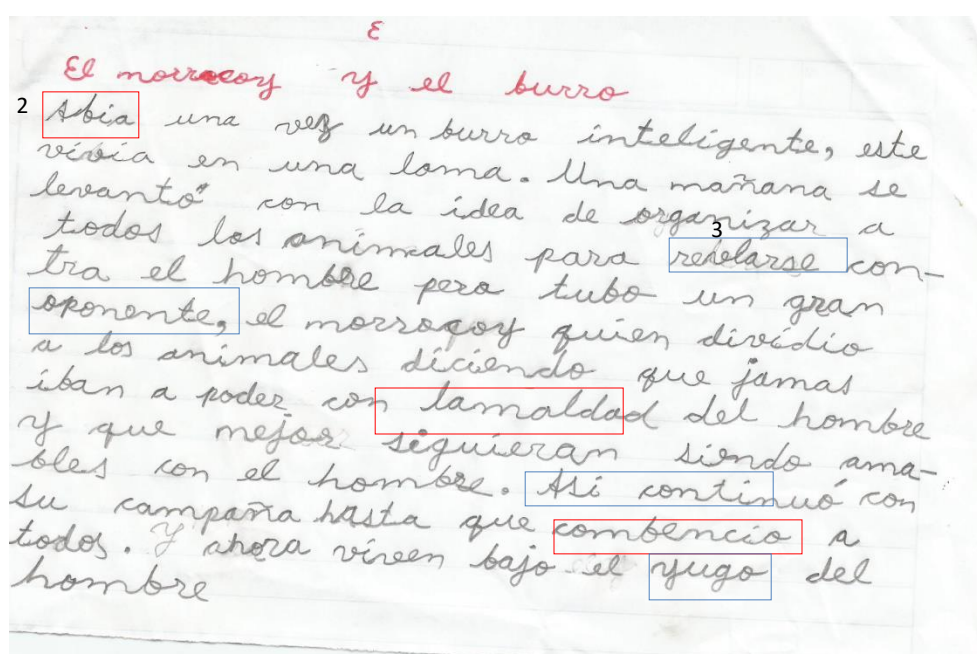 E
El morrocoy y el burro
2 Abia una vez un burro inteligente, este
vivia en una loma. Una mañana se
levantó con la idea de organizar a
3
todos los animales para rebelarse con-
tra el hombre pero tubo un gran
oponente, el morrocoy quien dividio
a los animales diciendo que jamas
iban a poder con lamaldad del hombre
y que mejor siguieran siendo ama-
bles con el hombre. Asi continuó con
su campaña hasta que combencio a
todos. Y ahora viven bajo el yugo del
hombre